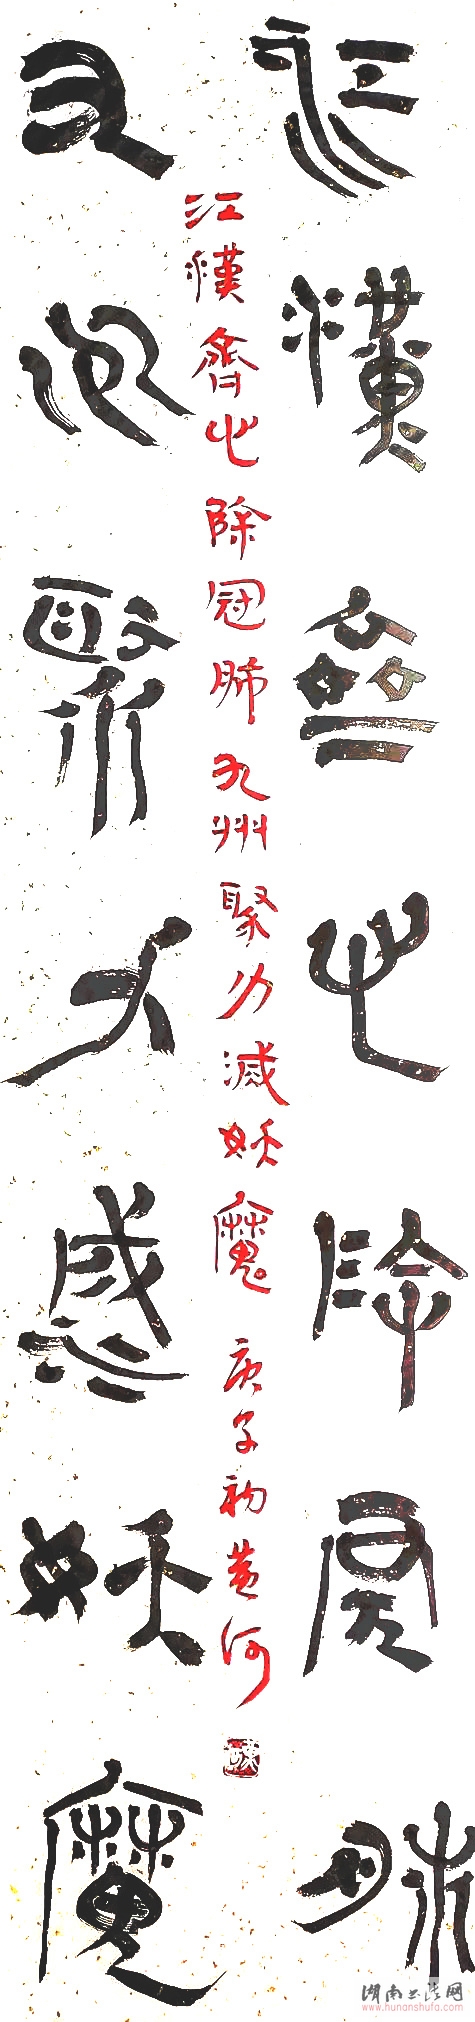 江漢齊心除冠肺
江漢齊心除冠肺九州聚力滅妖魔 庚子初黄河
九州聚力滅妖魔
湖南书法网
www.hunanshufa.com